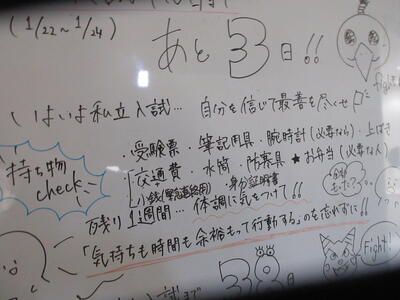 (1/22〜1/24)
あと3日!!
fight!
いよいよ私立入試… 自分を信じて最善を尽くせ
持ち物check
・受験票・筆記用具・腕時計(必要なら)・上ばき
・交通費・水筒・防寒具★お弁当(必要な人)
小銭(緊急連絡用)・身分証明書
残り1週間…体調に気をつけて!!
「気持ちも時間も余裕もって行動する」のを忘れずに!!
入試まで
38日
Fight!